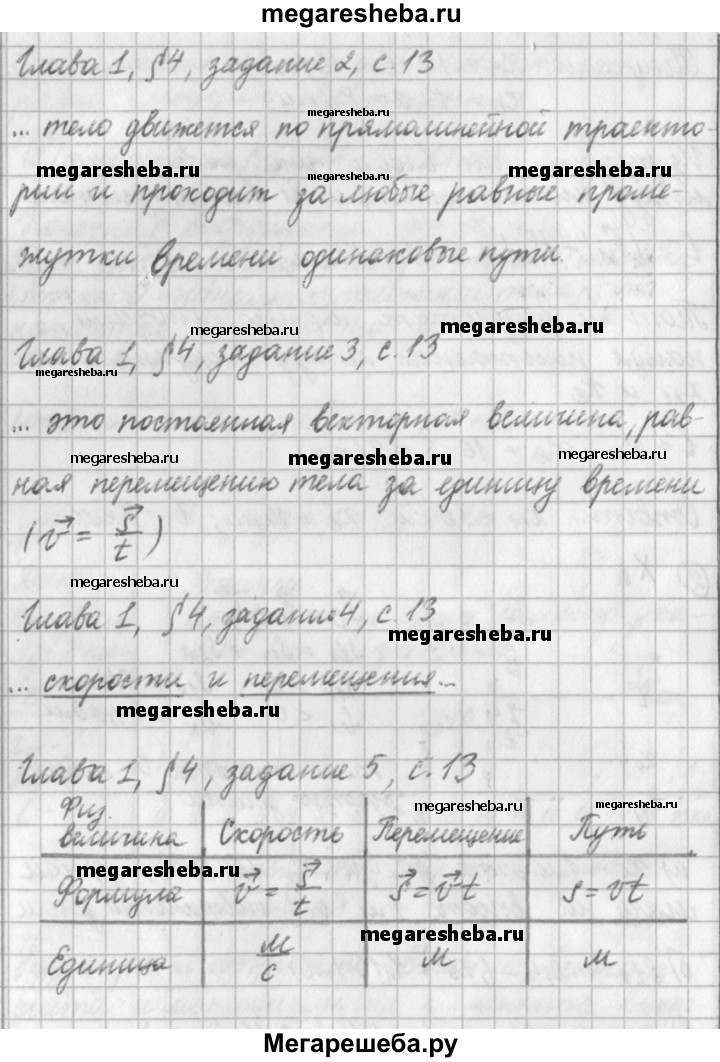 megaresheba.ru
Глава 1, §4, задание 2, с. 13
megaresheba.ru
... тело движется по прямолинейной траекто-
megaresheba.ru megaresheba.ru
рии и проходит за любые равные проме-
megaresheba.ru
жутки времени одинаковые пути.
megaresheba.ru megaresheba.ru
Глава 1, §4, задание 3, с. 13
megaresheba.ru
... это постоянная векторная величина, рав-
megaresheba.ru megaresheba.ru megaresheba.ru
ная перемещению тела за единицу времени
(v⃗ = s⃗/t)
megaresheba.ru
Глава 1, §4, задание 4, с. 13
megaresheba.ru
... скорости и перемещения...
megaresheba.ru
Глава 1, §4, задание 5, с. 13
megaresheba.ru megaresheba.ru
Физ. величина Скорость Перемещение Путь
megaresheba.ru
Формула v⃗ = s⃗/t s⃗ = v⃗t s = vt
megaresheba.ru
Единица м/с м м
Мегарешеба.ру